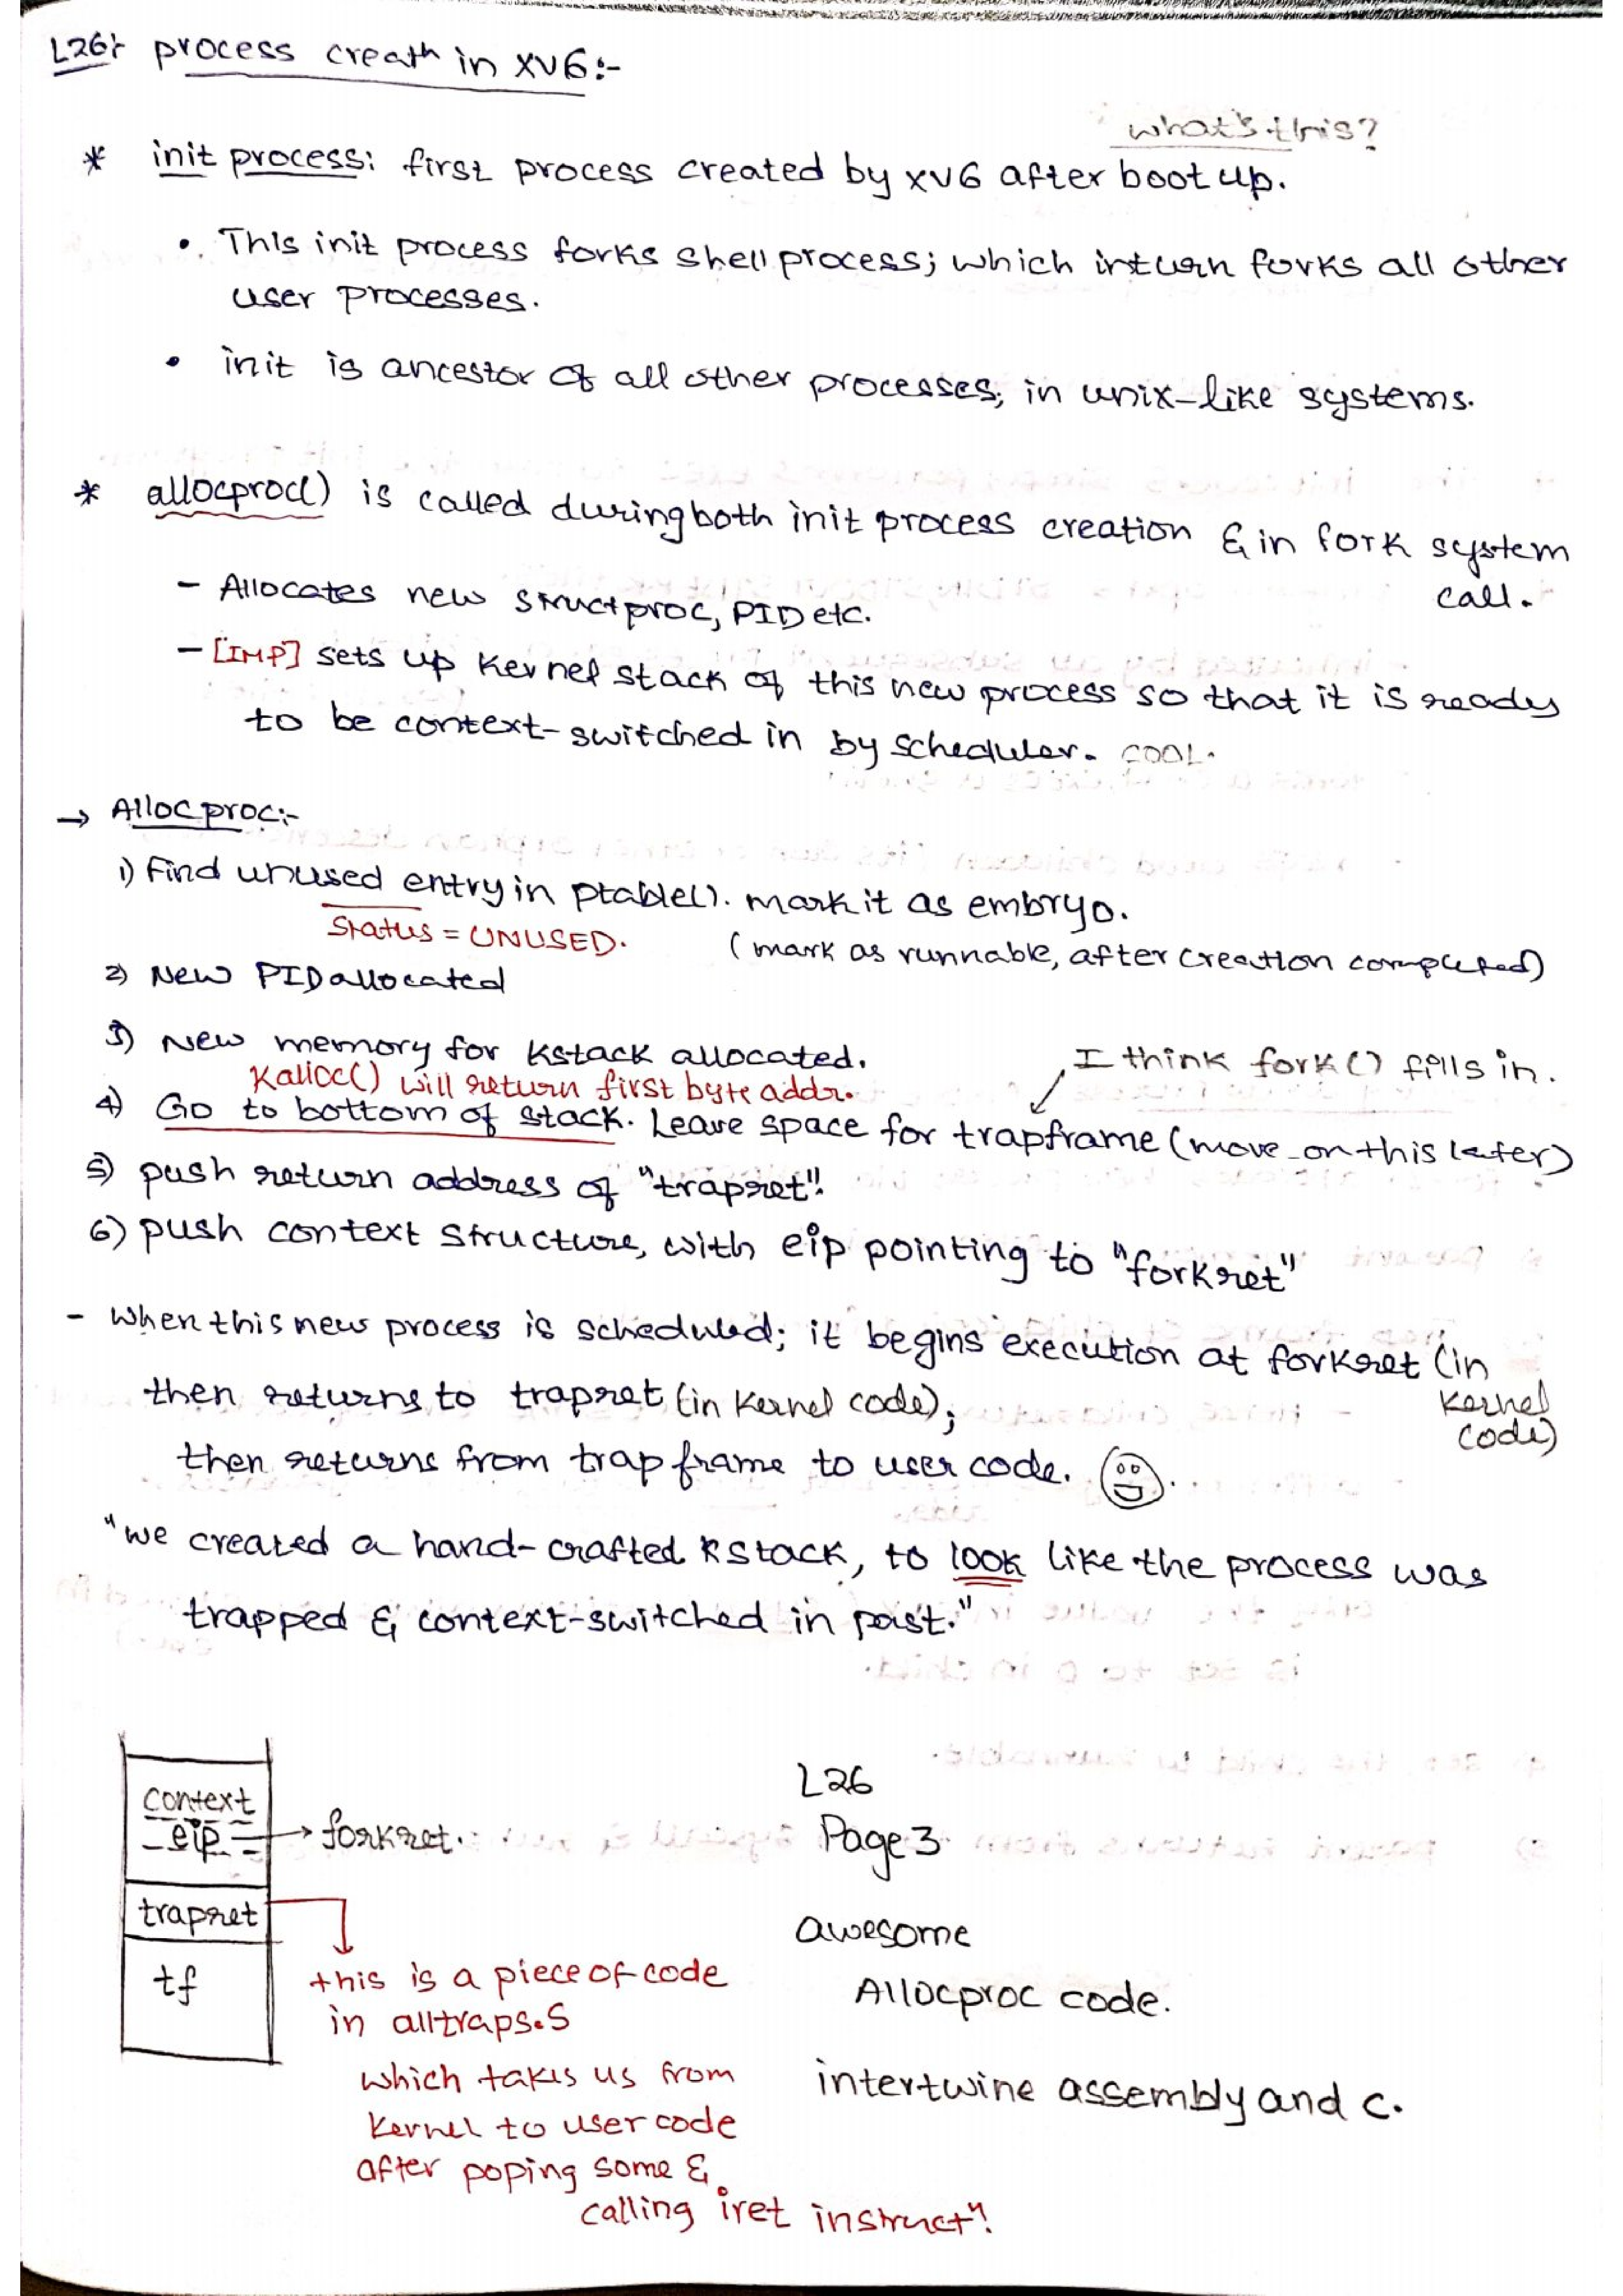 L26:- process creath in xv6:-
what's this?
* init process: first process created by xv6 after boot up.
• This init process forks shell process; which inturn forks all other
user processes.
• init is ancestor of all other processes, in unix-like systems.
* allocproc() is called during both init process creation & in fork system
call.
- Allocates new struct proc, PID etc.
- [IMP] sets up kernel stack of this new process so that it is ready
to be context-switched in by scheduler. COOL.
→ Allocproc:-
1) Find unused entry in ptable(). mark it as embryo.
Status = UNUSED. (mark as runnable, after creation completed)
2) New PID allocated
3) New memory for kstack allocated.
Kalloc() will return first byte addr. I think fork() fills in.
4) Go to bottom of stack. Leave space for trapframe (move on this later)
5) push return address of "trapret".
6) push context structure, with eip pointing to "forkret"
- when this new process is scheduled; it begins execution at forkret (in
kernel
code)
then returns to trapret (in kernel code),
then returns from trap frame to user code.
"we created a hand-crafted kstack, to look like the process was
trapped & context-switched in past."
context
eip → forkret.
trapret
tf
this is a piece of code
in alltraps.S
which takes us from
kernel to user code
after poping some &
calling iret instructn.
L26
Page 3
awesome
Allocproc code.
intertwine assembly and c.